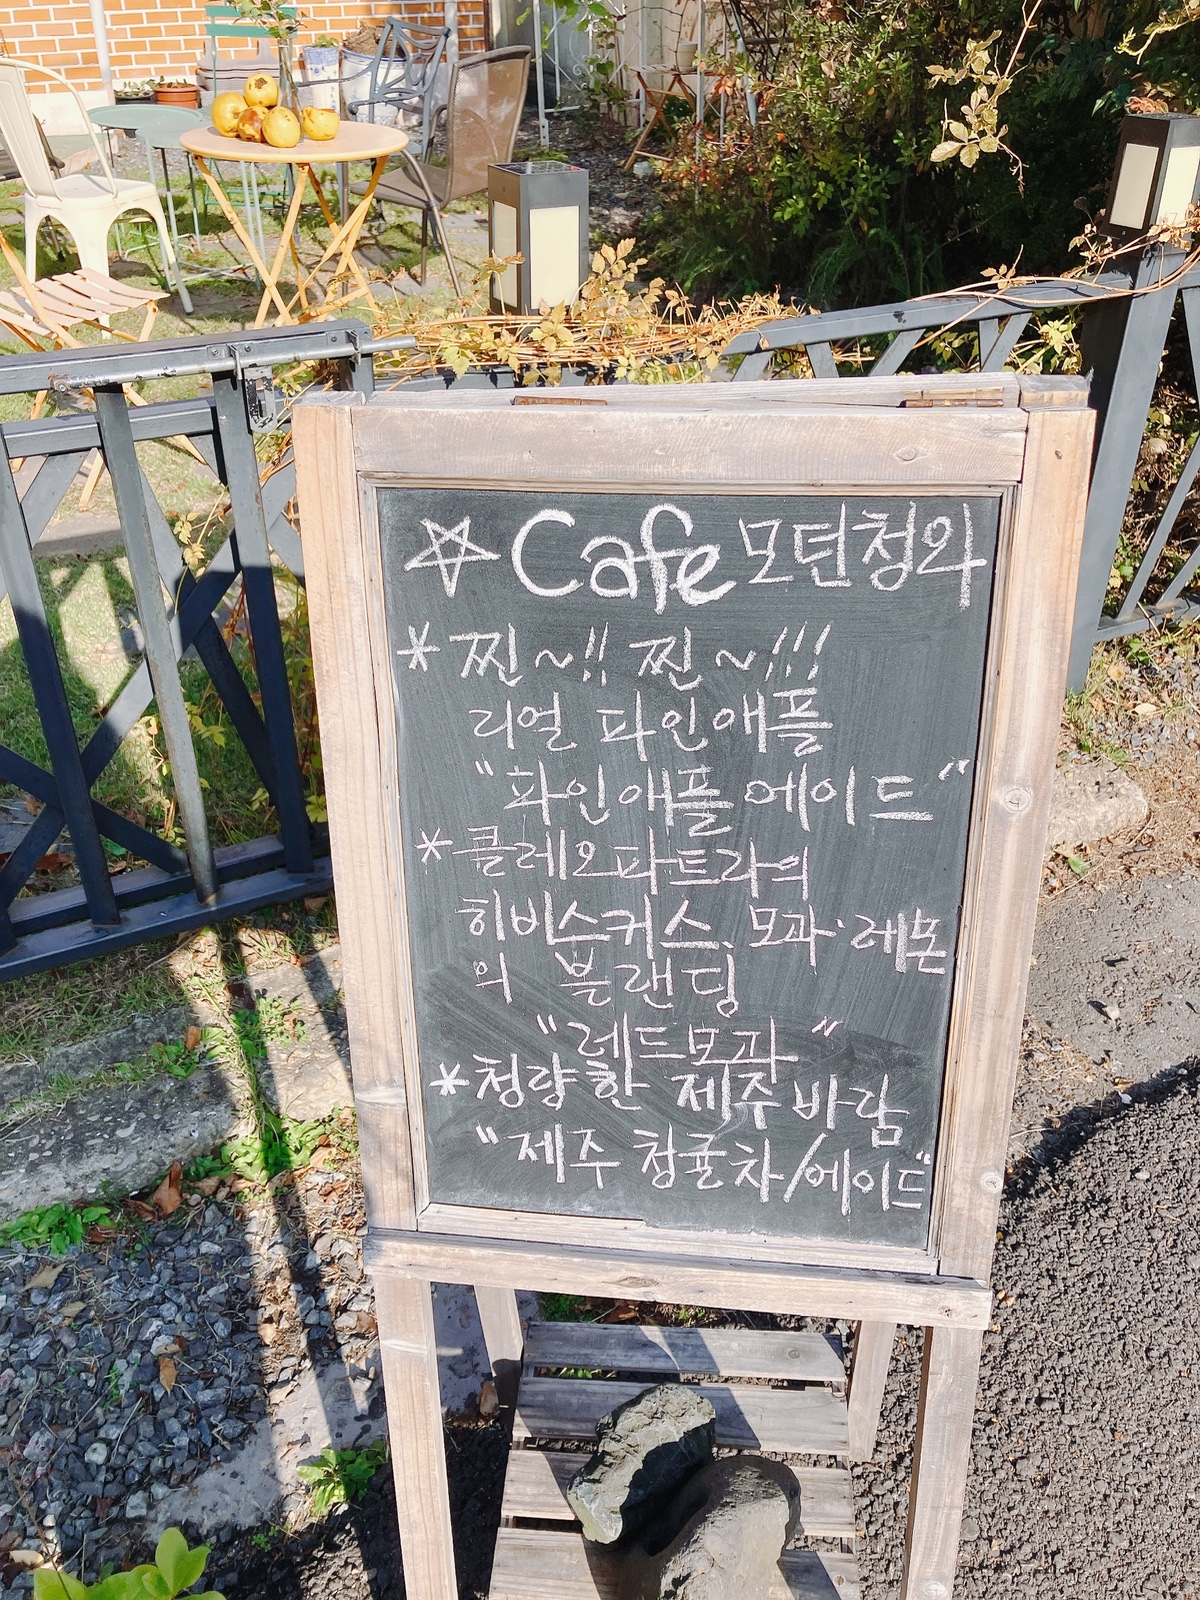 ☆ Cafe 모던청와
* 찐~!! 찐~!!!
리얼 파인애플
"파인애플에이드"
* 클레오파트라의
히비스커스, 모과·레몬
의 블랜딩
"레드모과"
* 청량한 제주바람
"제주 청귤차/에이드"